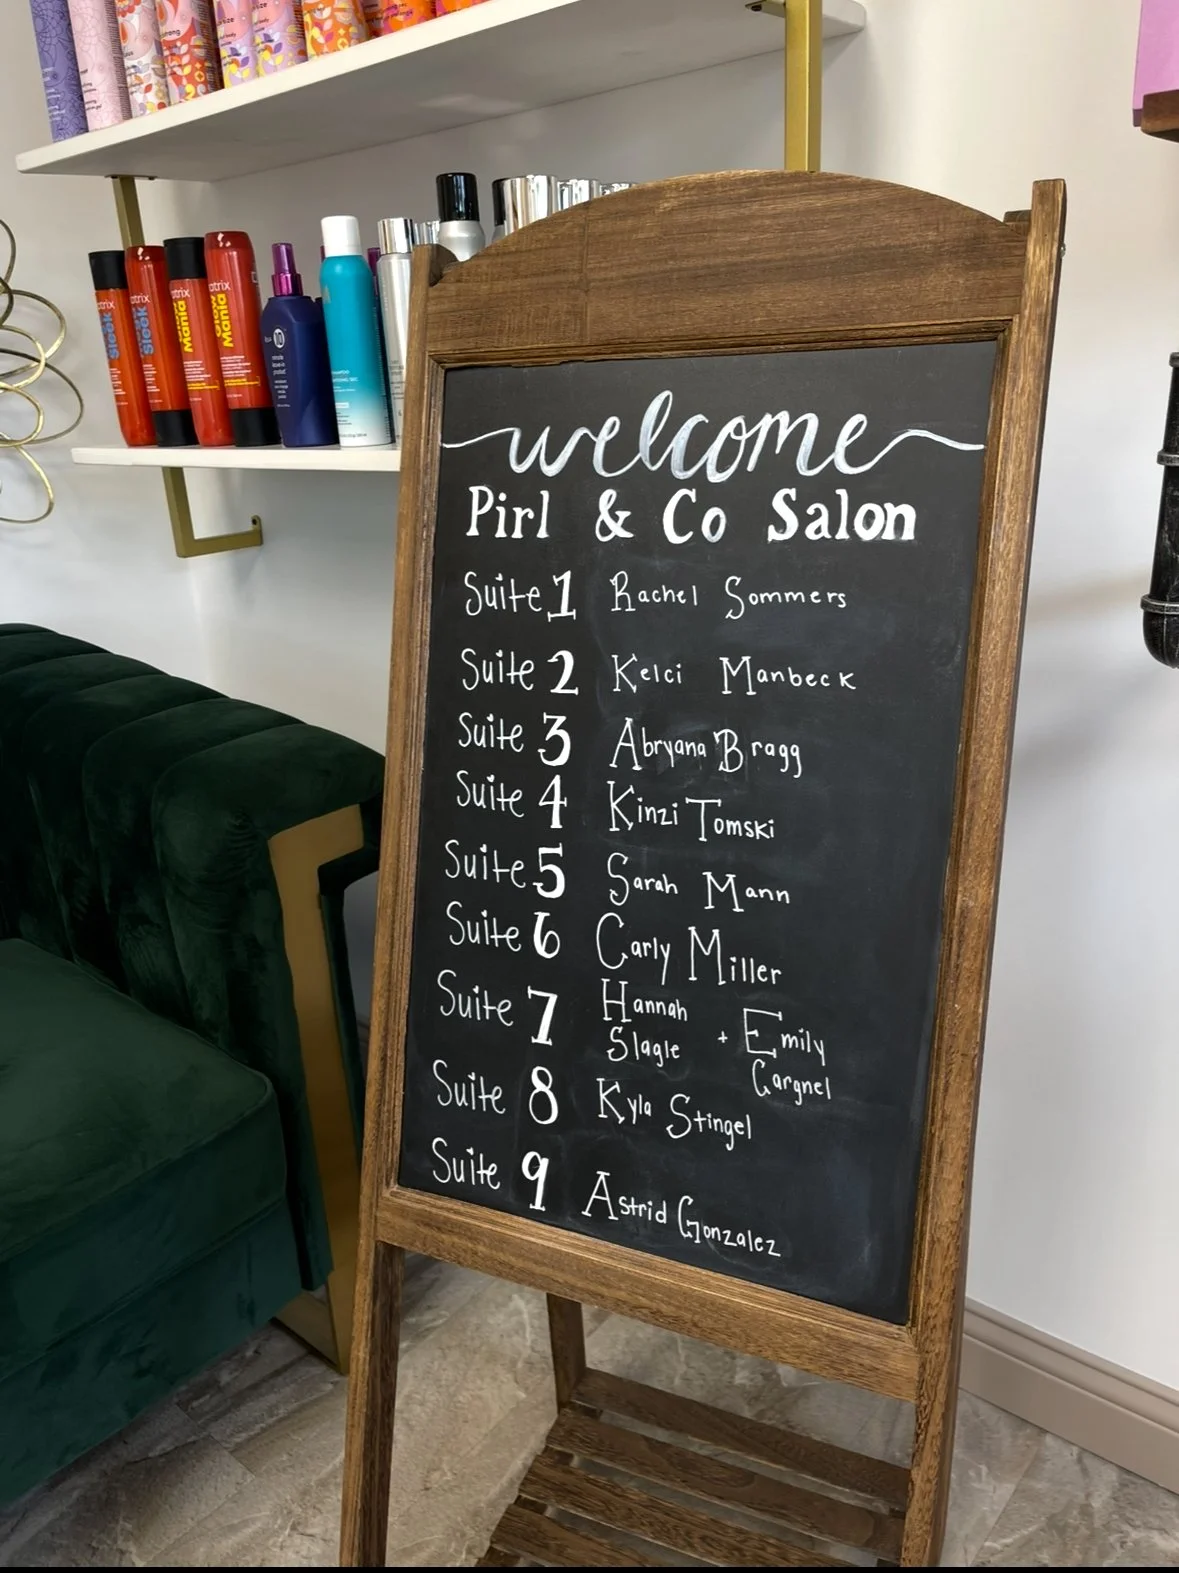 welcome
Pirl & Co Salon
Suite 1 Rachel Sommers
Suite 2 Kelci Manbeck
Suite 3 Abryana Bragg
Suite 4 Kinzi Tomski
Suite 5 Sarah Mann
Suite 6 Carly Miller
Suite 7 Hannah Slagle + Emily Gargnel
Suite 8 Kyla Stingel
Suite 9 Astrid Gonzalez
Sleek
Sleek
Mania
Mania
10